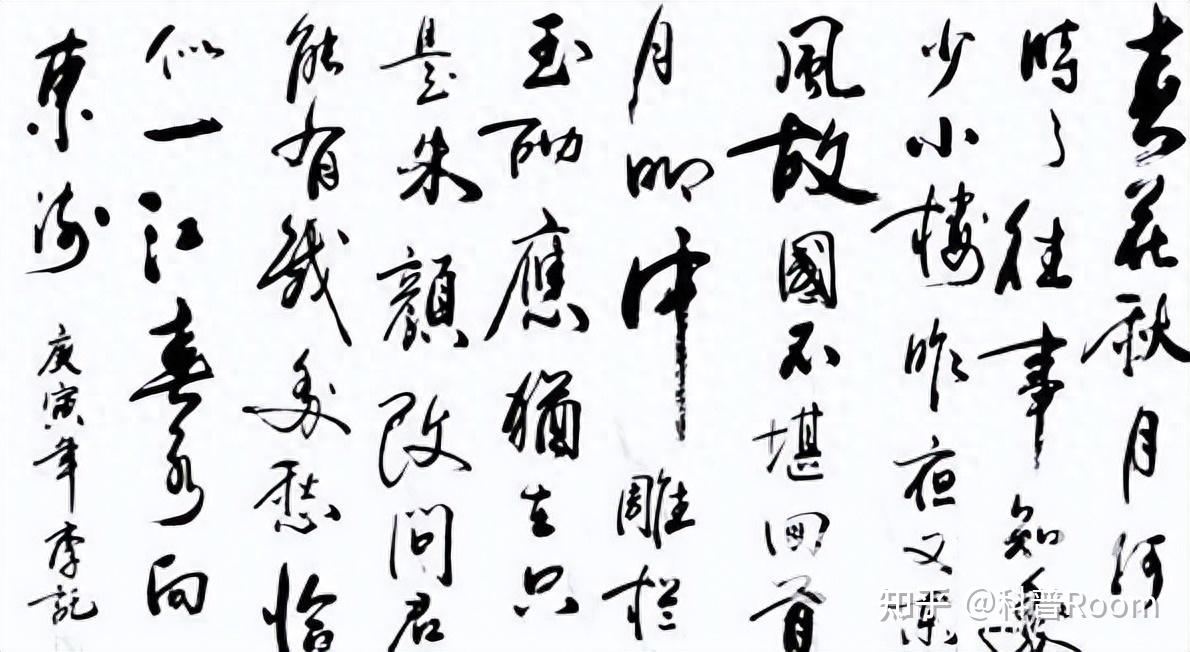 春花秋月何
時了往事知多
少小樓昨夜又東
風故國不堪回首
月明中雕栏
玉砌應猶在只
是朱顏改問君
能有幾多愁恰
似一江春水向
東流
庚寅年李記
知乎 @科普Room